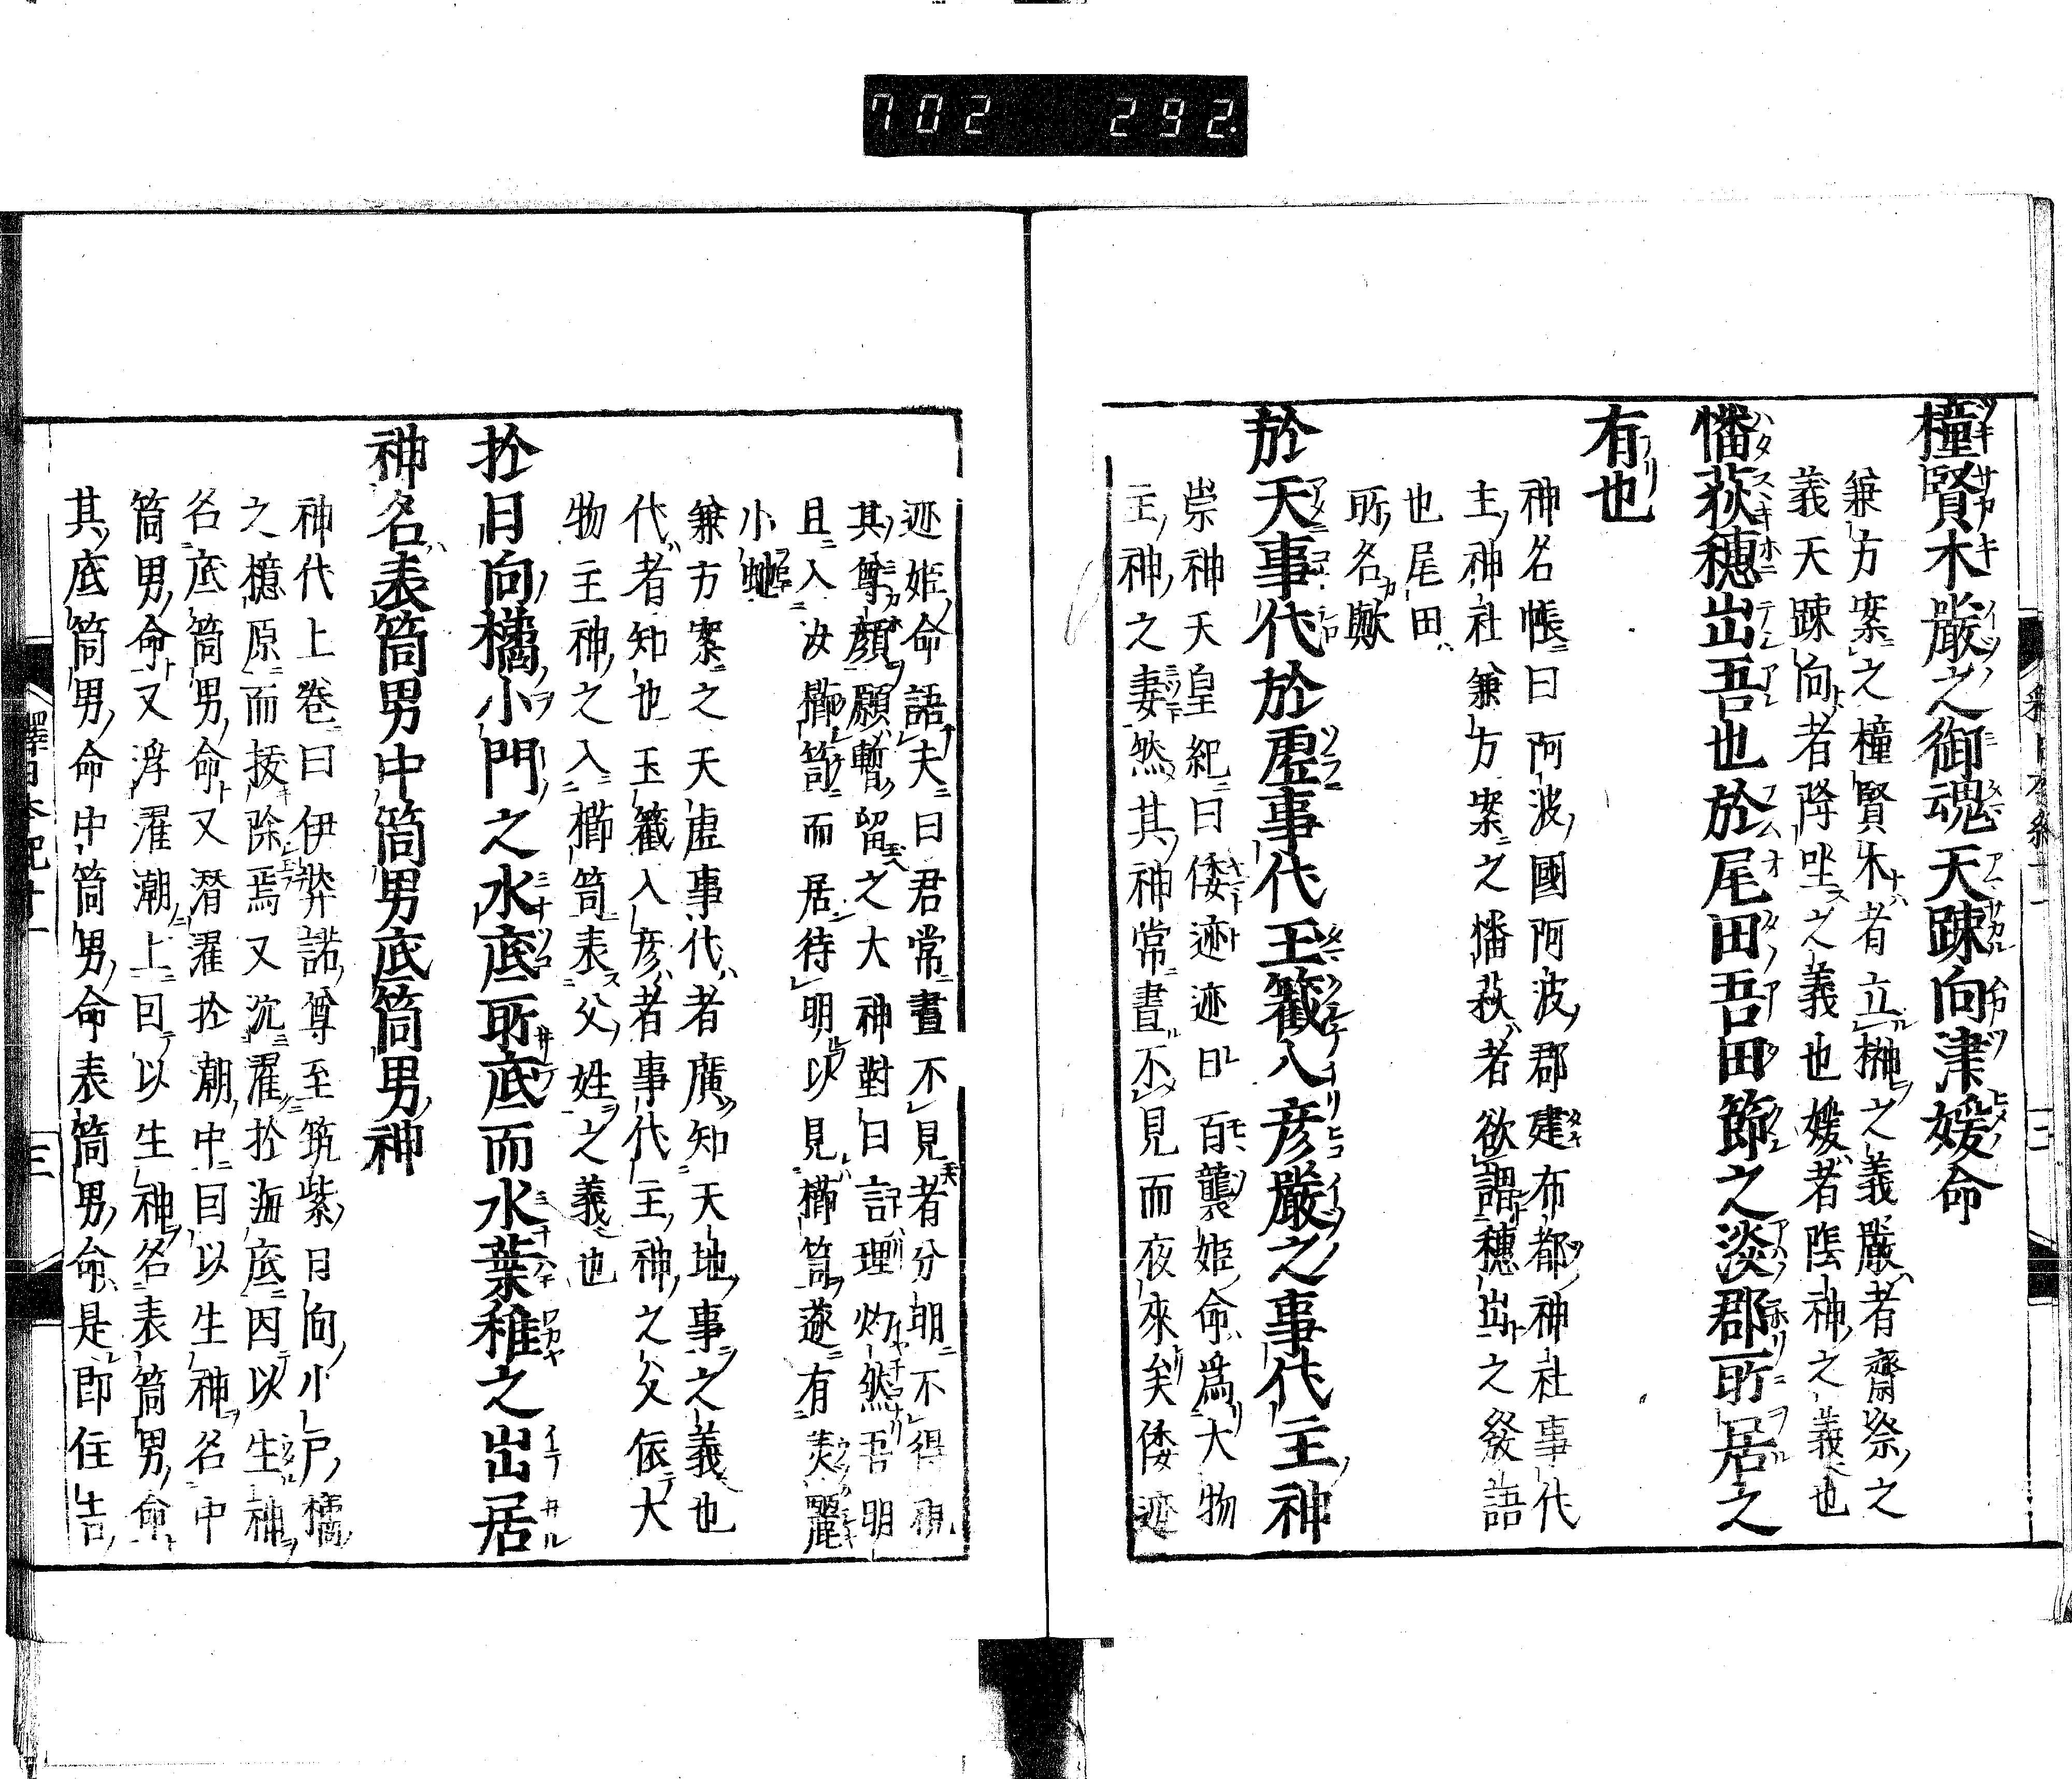 702 292
撞賢木嚴之御魂天踈向津媛命
兼方案之撞賢木者立榊之義嚴者齋祭之
義天踈向者降坐之義也媛者陰神之義也
幡荻穗出吾也於尾田吾田節之淡郡所居之
有也
神名帳曰阿波國阿波郡建布都神社事代
主神社兼方案之幡荻者欲謂穗出之發語
也尾田
所名歟
於天事代於虛事代玉籤入彥嚴之事代主神
崇神天皇紀曰倭迹迹日百襲姬命爲大物
主神之妻然其神常晝不見而夜來矣倭迹
迹姬命語夫曰君常晝不見者分明不得視
其尊顏願暫留之大神對曰言理灼然吾明
旦入汝櫛笥而居待明以見櫛笥遂有美麗
小虵
兼方案之天虛事代者廣知天地事之義也
代者知也玉籤入彥者事代主神之父依大
物主神之入櫛笥表父姓之義也
於日向橘小門之水底所底而水葉稚之出居
神名表筒男中筒男底筒男神
神代上卷曰伊弉諾尊至筑紫日向小戶橘
之檍原而拔除焉又沉濯於海底因以生神
名底筒男命又潛濯於潮中因以生神名中
筒男命又浮濯潮上因以生神名表筒男命
其底筒男命中筒男命表筒男命是即住吉
釋日本紀十一
三